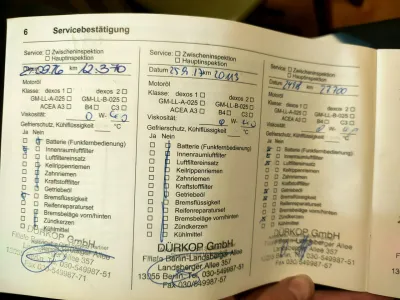 6 Servicebestätigung
Service: ☐ Zwischeninspektion
☐ Hauptinspektion
km 12.370
Motoröl
Klasse: dexos 1 ☐ dexos 2 ☐
GM-LL-A-025 ☐ GM-LL-B-025 ☐
ACEA A3 ☐ B4 ☐ C3 ☐
Viskosität: 0 W- 40
Gefrierschutz, Kühlflüssigkeit: °C
Ja Nein
Batterie (Funkfernbedienung)
Innenraumluftfilter
Luftfiltereinsatz
Keilrippenriemen
Zahnriemen
Kraftstofffilter
Getriebeöl
Bremsflüssigkeit
Reifenreparaturset
Bremsbeläge vorn/hinten
Zündkerzen
Kühlmittel
DÜRKOP GmbH
Service: ☐ Zwischeninspektion
☐ Hauptinspektion
Datum 25.9.17 km 20113
Motoröl
Klasse: dexos 1 ☐ dexos 2 ☐
GM-LL-A-025 ☐ GM-LL-B-025 ☐
ACEA A3 ☐ B4 ☐ C3 ☐
Viskosität: 0 W- 40
Gefrierschutz, Kühlflüssigkeit: °C
Ja Nein
Batterie (Funkfernbedienung)
Innenraumluftfilter
Luftfiltereinsatz
Keilrippenriemen
Zahnriemen
Kraftstofffilter
Getriebeöl
Bremsflüssigkeit
Reifenreparaturset
Bremsbeläge vorn/hinten
Zündkerzen
Kühlmittel
DÜRKOP GmbH
Filiale Berlin-Landsberg
Landsberger Allee
13055 Berlin Tel.
Fax 030/549987-51
Service: ☐ Zwischeninspektion
☐ Hauptinspektion
Datum km 27.700
Motoröl
Klasse: dexos 1 ☐ dexos 2 ☐
GM-LL-A-025 ☐ GM-LL-B-025 ☐
ACEA A3 ☐ B4 ☐ C3 ☐
Viskosität: W-
Gefrierschutz, Kühlflüssigkeit: °C
Ja Nein
Batterie (Funkfernbedienung)
Innenraumluftfilter
Luftfiltereinsatz
Keilrippenriemen
Zahnriemen
Kraftstofffilter
Getriebeöl
Bremsflüssigkeit
Reifenreparaturset
Bremsbeläge vorn/hinten
Zündkerzen
DÜRKOP GmbH
Allee 357